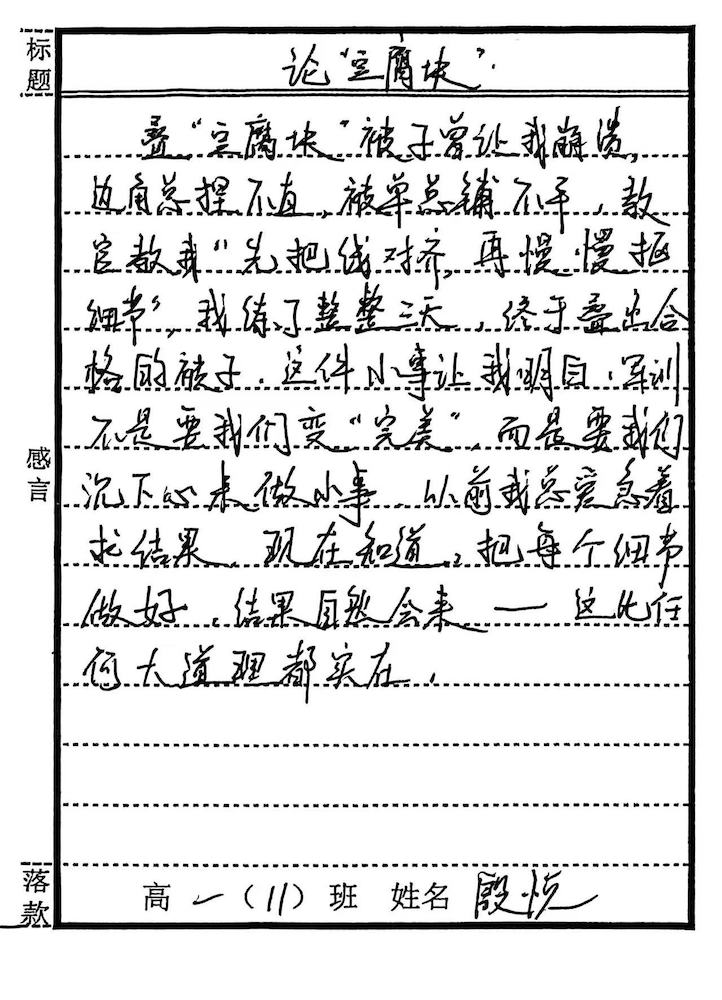 标题
论"豆腐块".
叠"豆腐块"被子曾让我崩溃,
边角总捏不直,被单总铺不平,教
官教我"先把线对齐,再慢慢抠
细节",我练了整整三天,终于叠出合
格的被子.这件小事让我明白:军训
不是要我们变"完美",而是要我们
沉下心来做小事.以前我总爱急着
求结果,现在知道,把每个细节
做好,结果自然会来——这比任
何大道理都实在.
感言
落款
高一(11)班 姓名 殷悦